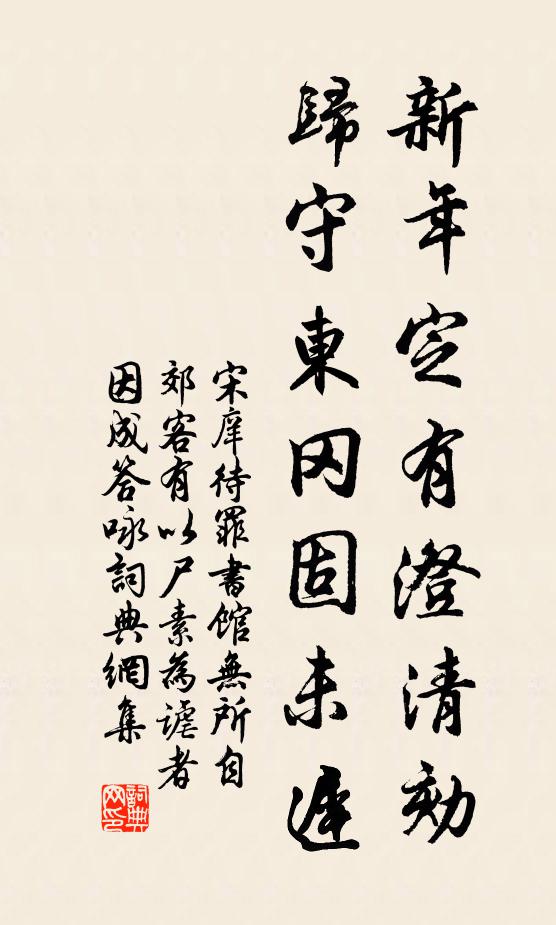 新年定有澄清効
歸守東冈固未遲
宋庠待罪書館無所自
郊客有以尸素為謔者
因成答咏詞典網集
詞典网印